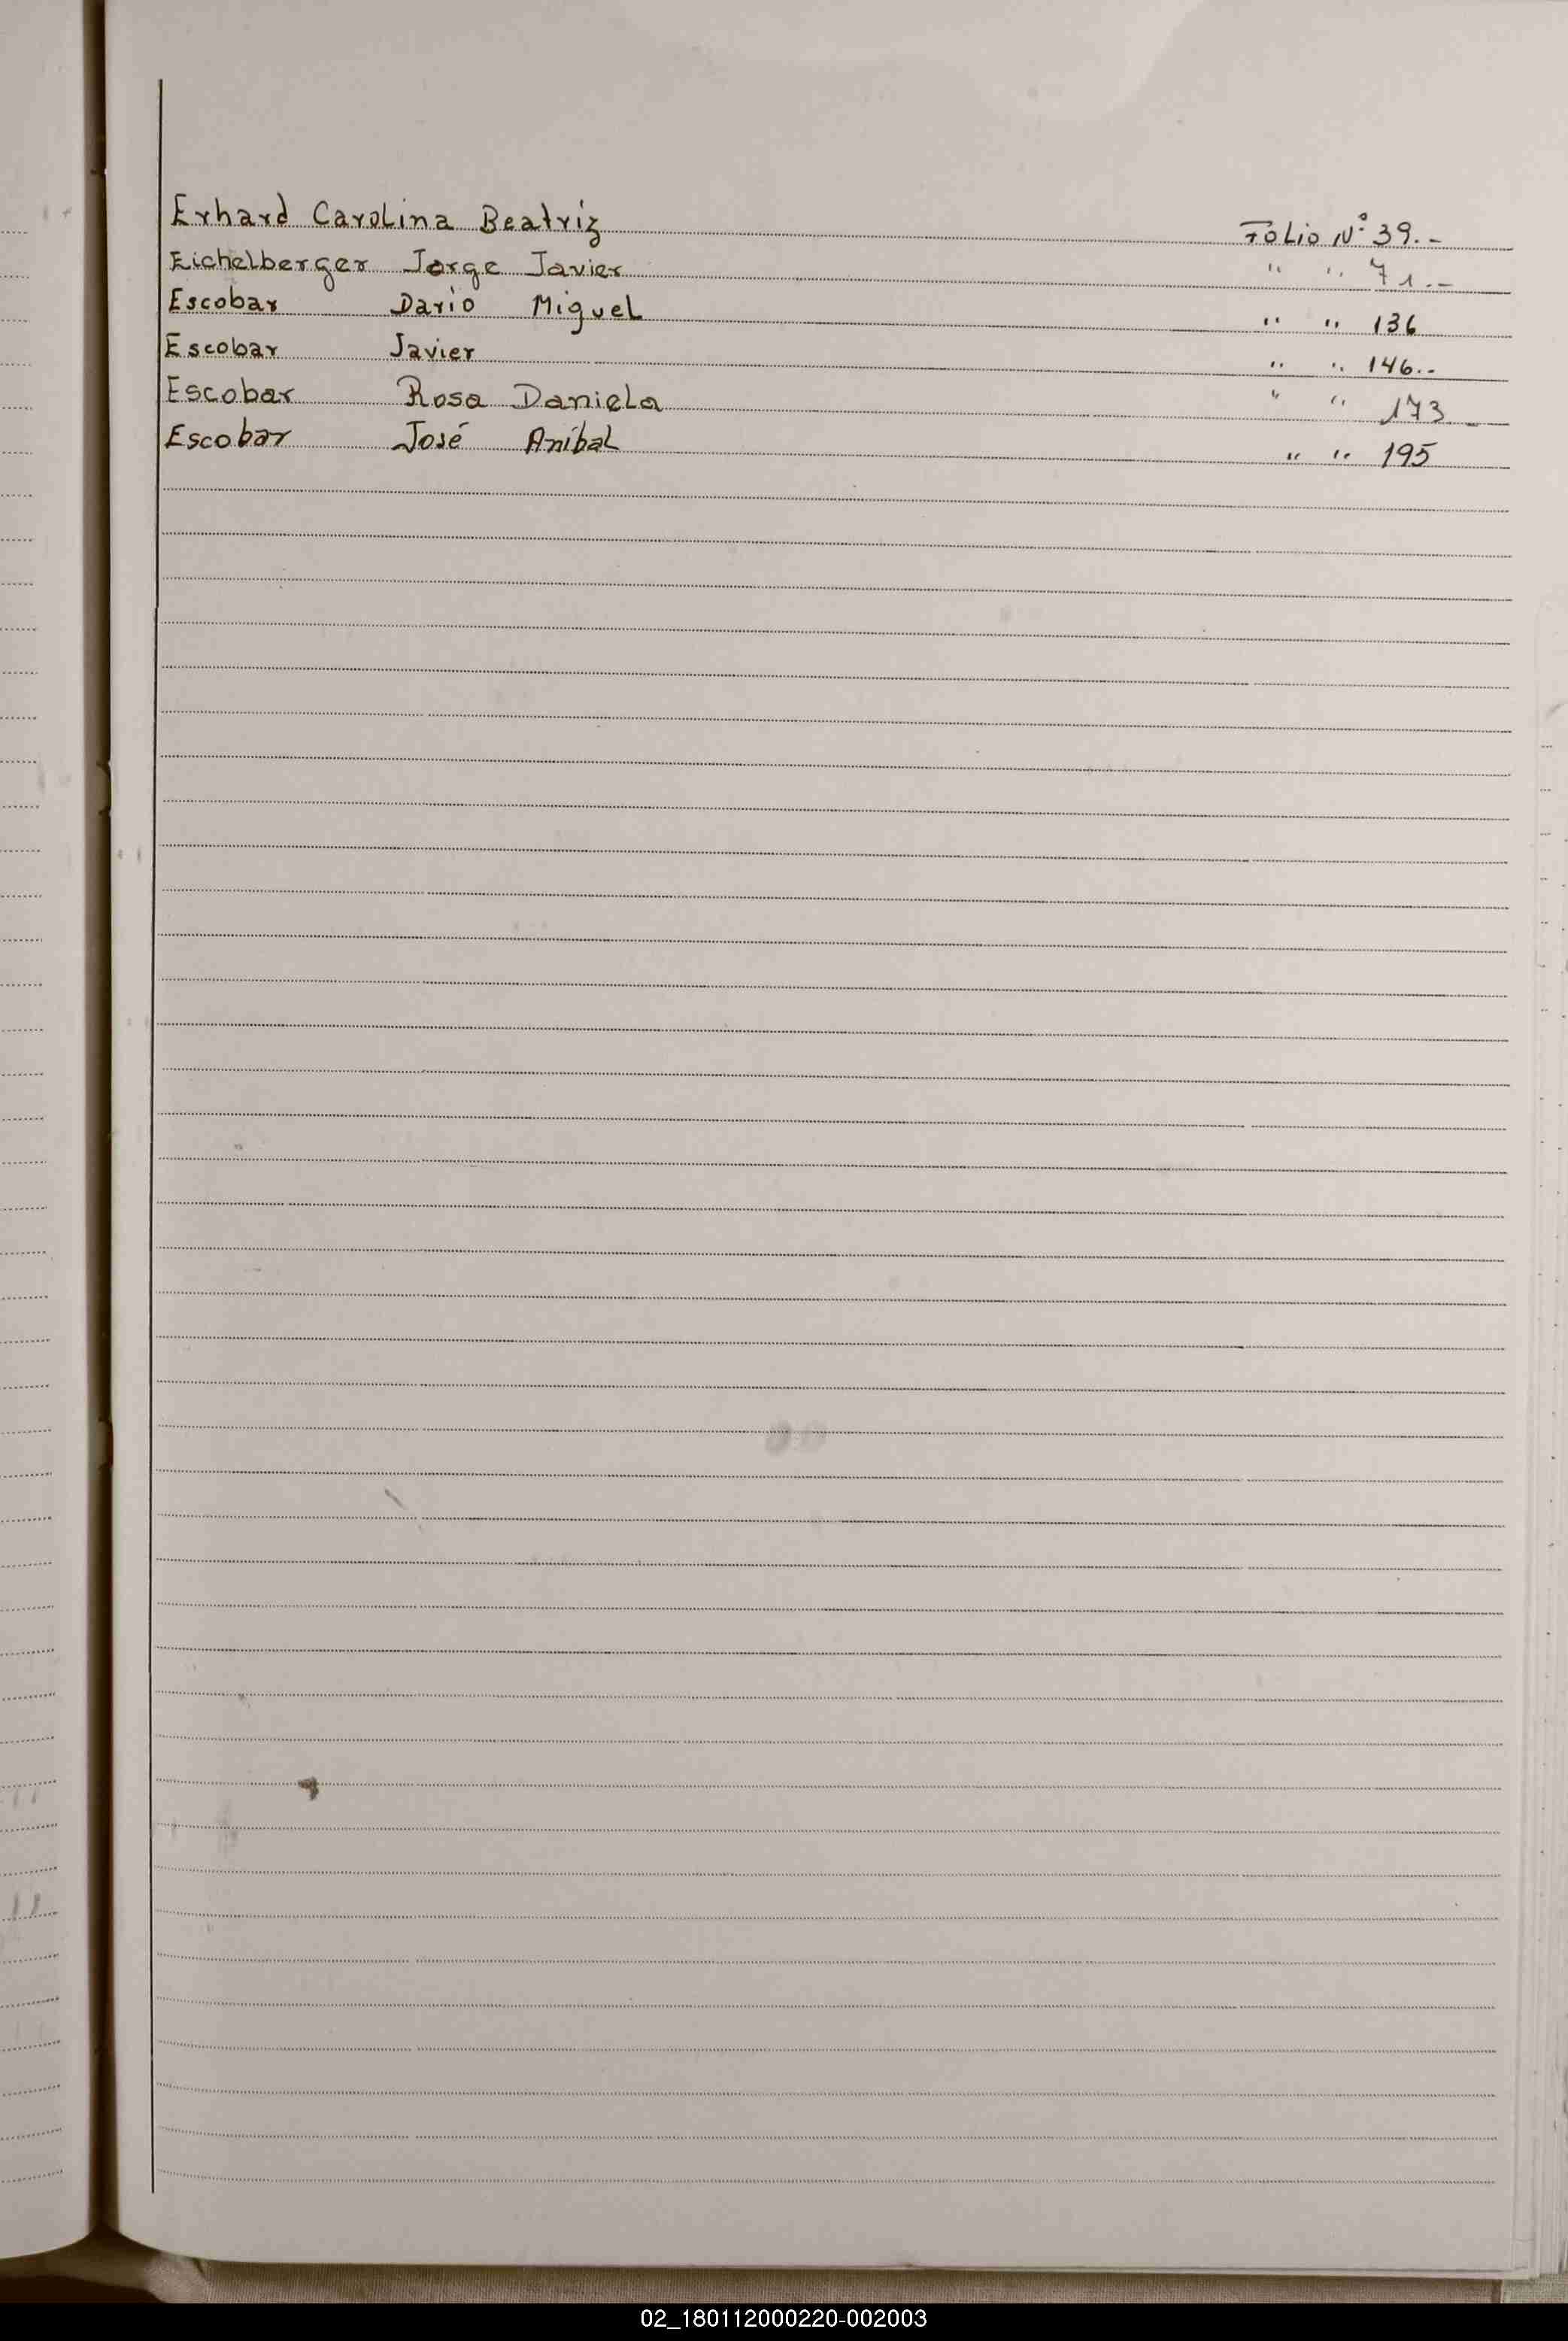 Erhard Carolina Beatriz Folio Nº 39.-
Eichelberger Jorge Javier " " 71.-
Escobar Dario Miguel " " 136
Escobar Javier " " 146.-
Escobar Rosa Daniela " " 173-
Escobar José Aníbal " " 195
02_180112000220-002003